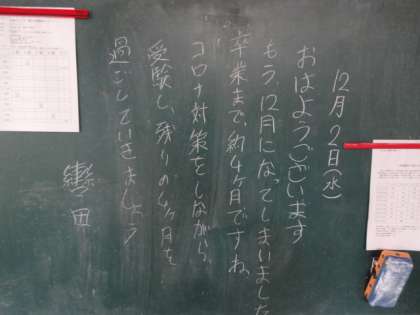 12月2日(水)
おはようございます
もう12月になってしまいました
卒業まで、約4ヶ月ですね。
コロナ対策をしながら、
受験し、残りの4ヶ月を
過ごしていきましょう